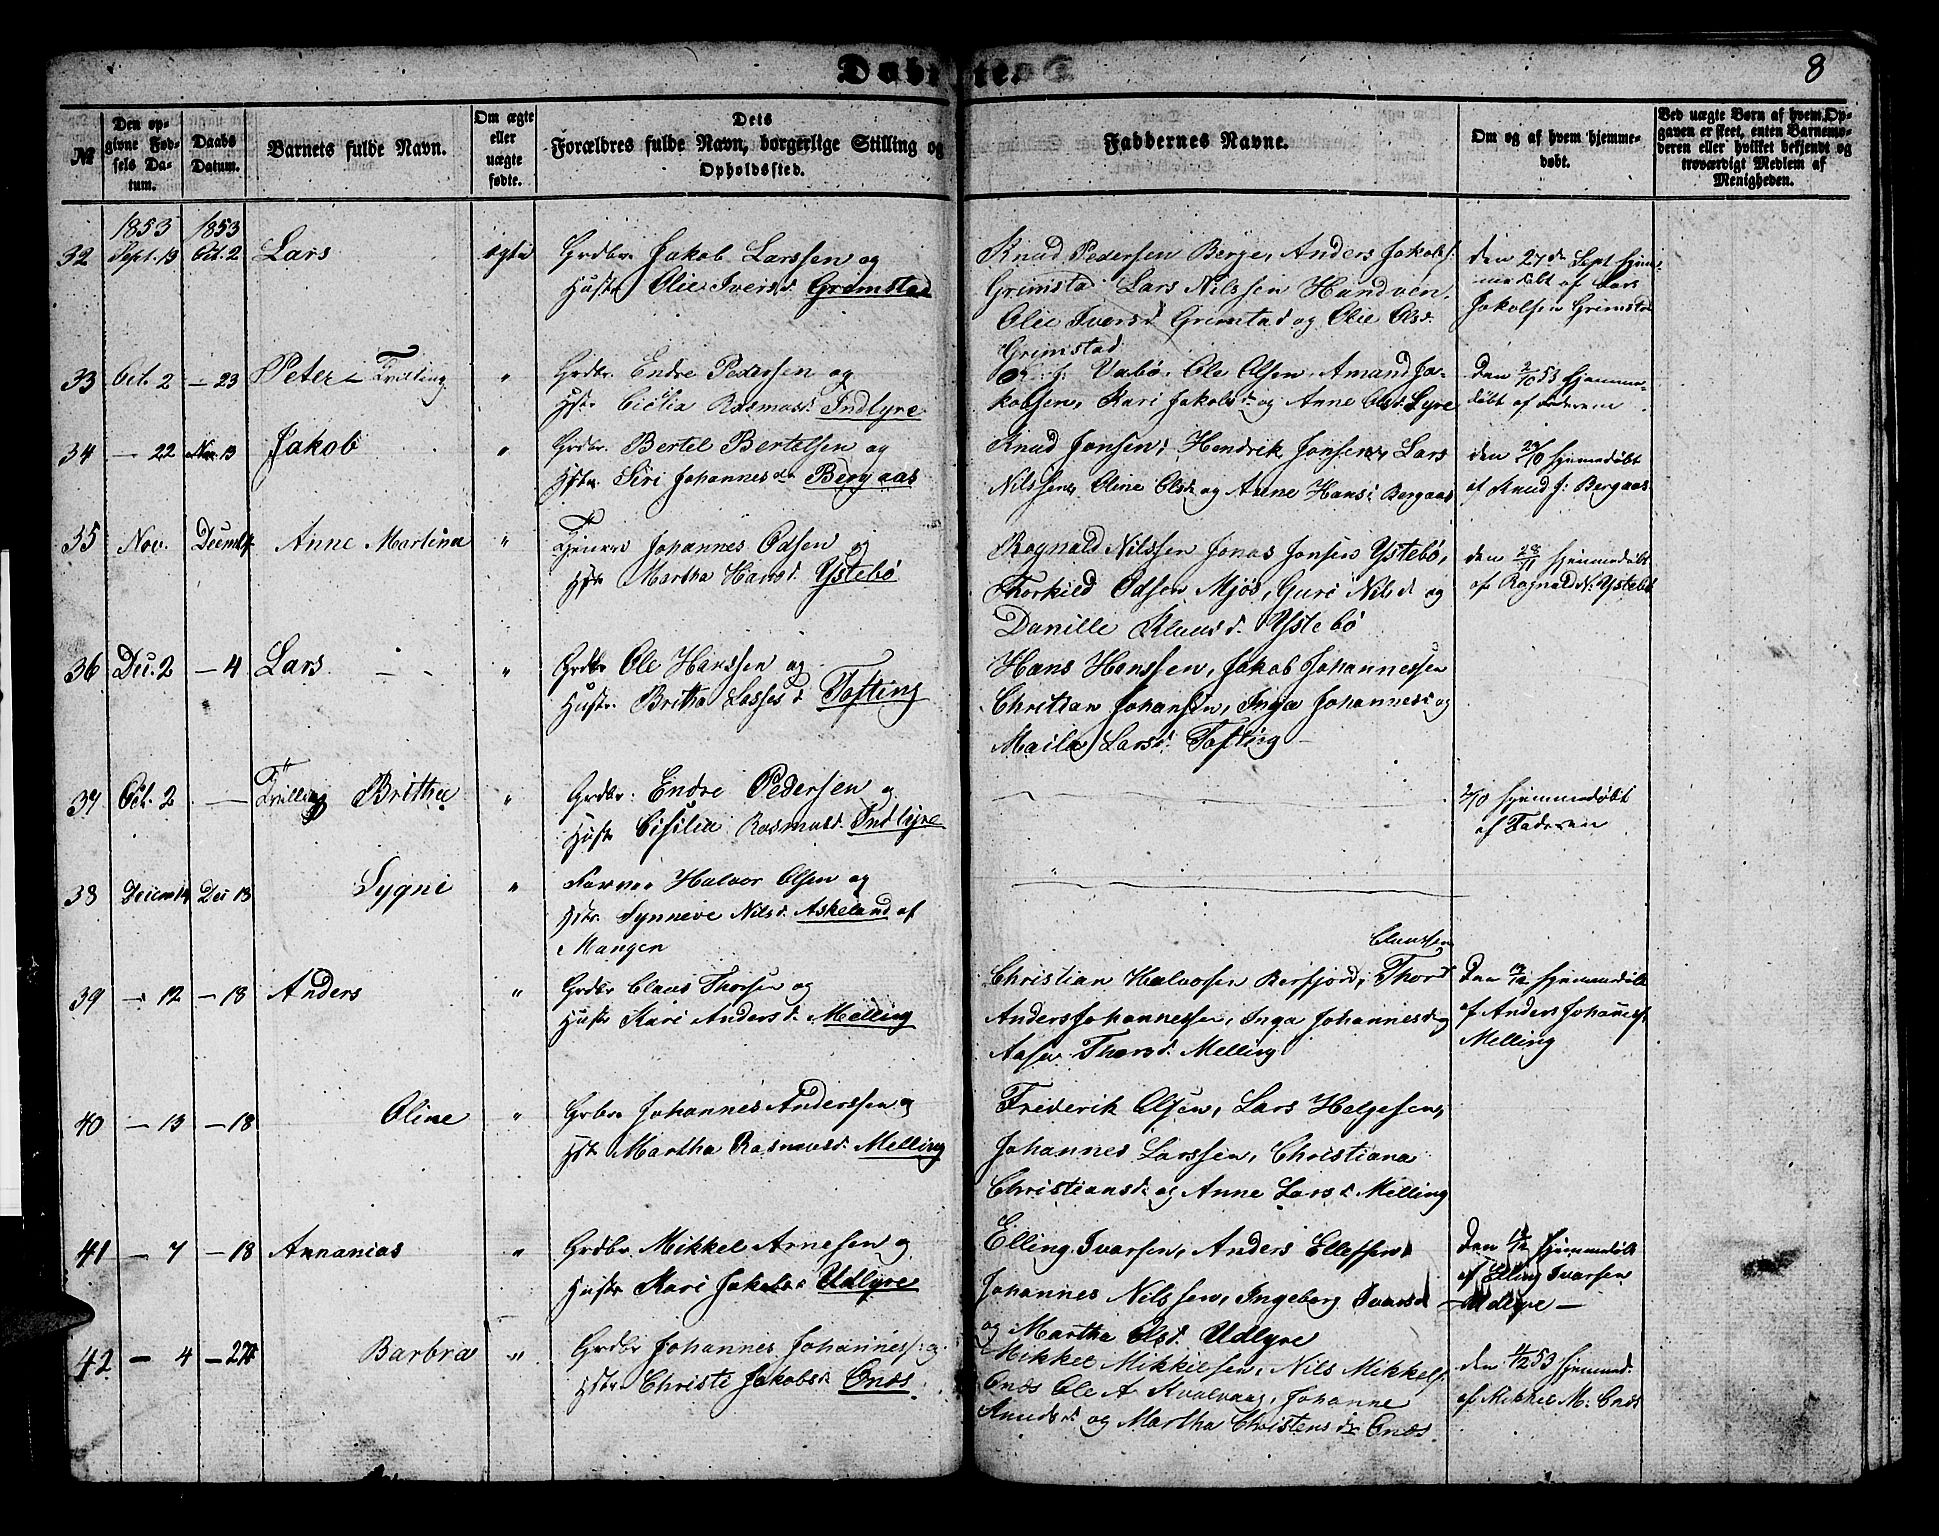 Dobte.
8
№
Den op-
givne Fød-
sels Da-
tum.
Daabs
Datum.
Barnets fulde Navn.
Om ægte
eller
uægte
fødte.
Dets
Forældres fulde Navn, borgerlige Stilling og
Opholdssted.
Faddernes Navne.
Om og af hvem hjemme-
døbt.
Ved uægte Børn af hvem Op-
gaven er skeet, enten Barnemo-
deren eller hvilket bekjendt og
troværdigt Medlem af
Menigheden.
1853 1853
32 Sept. 13 Oct. 2 Lars ægte Grdbr Jakob Larssen og
Hustr Olie Ivers d. Grimstad
Knud Pedersen Berge, Anders Jakobs.
Grimstad Lars Nilssen Handven,
Olie Ivers d Grimstad og Olie Ols d.
Grimstad
den 27de Sept hjem-
medøbt af Lars
Jakobsen Grimstad
33 Oct. 2 — 23 Peter — Tvilling " Grdbr. Endre Pedersen og
Hstr Cicilia Rasmus d. Indlyre
Vabø, Ole Olsen, Amand Ja-
kobsen, Kari Jakobs d og Anne Ols d. Lyre
Den 2/10 53 hjemme-
døbt af Faderen
34 — 22 Nov 13 Jakob " Grdbr. Bertel Bertelsen og
Hstr Siri Johannes dtr Bergaas
Knud Jonsen, Hendrik Jonsen, Lars
Nilssen, Oline Ols d og Anne Hans d Bergaas
den 23/10 hjemmedøbt
af Knud J. Bergaas
35 Nov. Decmb 4 Anne Martina " Tjener Johannes Odsen og
Hstr Martha Hans d. Ystebö
Rognald Nilssen Jonas Jonsen Ystebö,
Thorkild Odsen Mjös, Guri Nils d og
Danille Klaus d. Ystebö
den 28/11 hjemmedøbt
af Rognald N. Ystebö
36 Dec. 2 — 4 Lars " Grdbr Ole Hanssen og
Hustr. Britha Lasses d Tofting
Hans Hanssen, Jakob Johannessen
Christian Johansen, Inga Johannes d og
Maila Lars d. Tofting —
37 Oct. 2 — Tvilling Britha " Grdbr. Endre Pedersen og
Hustr Cisilia Rasmus d. Indlyre
2/10 hjemmedøbt
af Faderen
38 Decem 14 Dec 13 Sygni " Halvor Olsen og
Hstr. Synneve Nils d. Askeland af
Mangen
39 — 12 — 18 Anders " Grdbr Claus Thorsen og
Hustr Kari Anders d. Melling
Claussen
Christian Halvorsen Berfjord, Thord
Anders Johannessen, Inga Johannes d og
Aase Thors d. Melling
Den 12/12 hjemmedøbt
af Anders Johannes.
Melling
40 — 13 — 18 Oline " Grbr Johannes Anderssen og
Hstr Martha Rasmus d. Melling
Friderik Olsen, Lars Helgesen,
Johannes Larssen, Christiana
Christians d. og Anne Lars d Melling
41 — 7 — 18 Annanias " Grdbr. Mikkel Arnesen og
Hustr Kari Jakobs d Udlyre
Elling Ivarsen, Anders Ellessen
Johannes Nilssen, Ingeborg Ivars d
og Martha Ols d. Udlyre
hjemmedøbt
af Elling Ivarsen
42 — 4 — 27 Barbra " Grdbr Johannes Johanness. og
Hstr Christi Jakobs d Onæs
Mikkel Mikkelsen, Nils Mikkels.
Onæs Ole A Kvalvaag, Johanne
Amunds d og Martha Christens dtr Onæs.
den 4/12 53 hjemmed.
af Mikkel M. Onæs